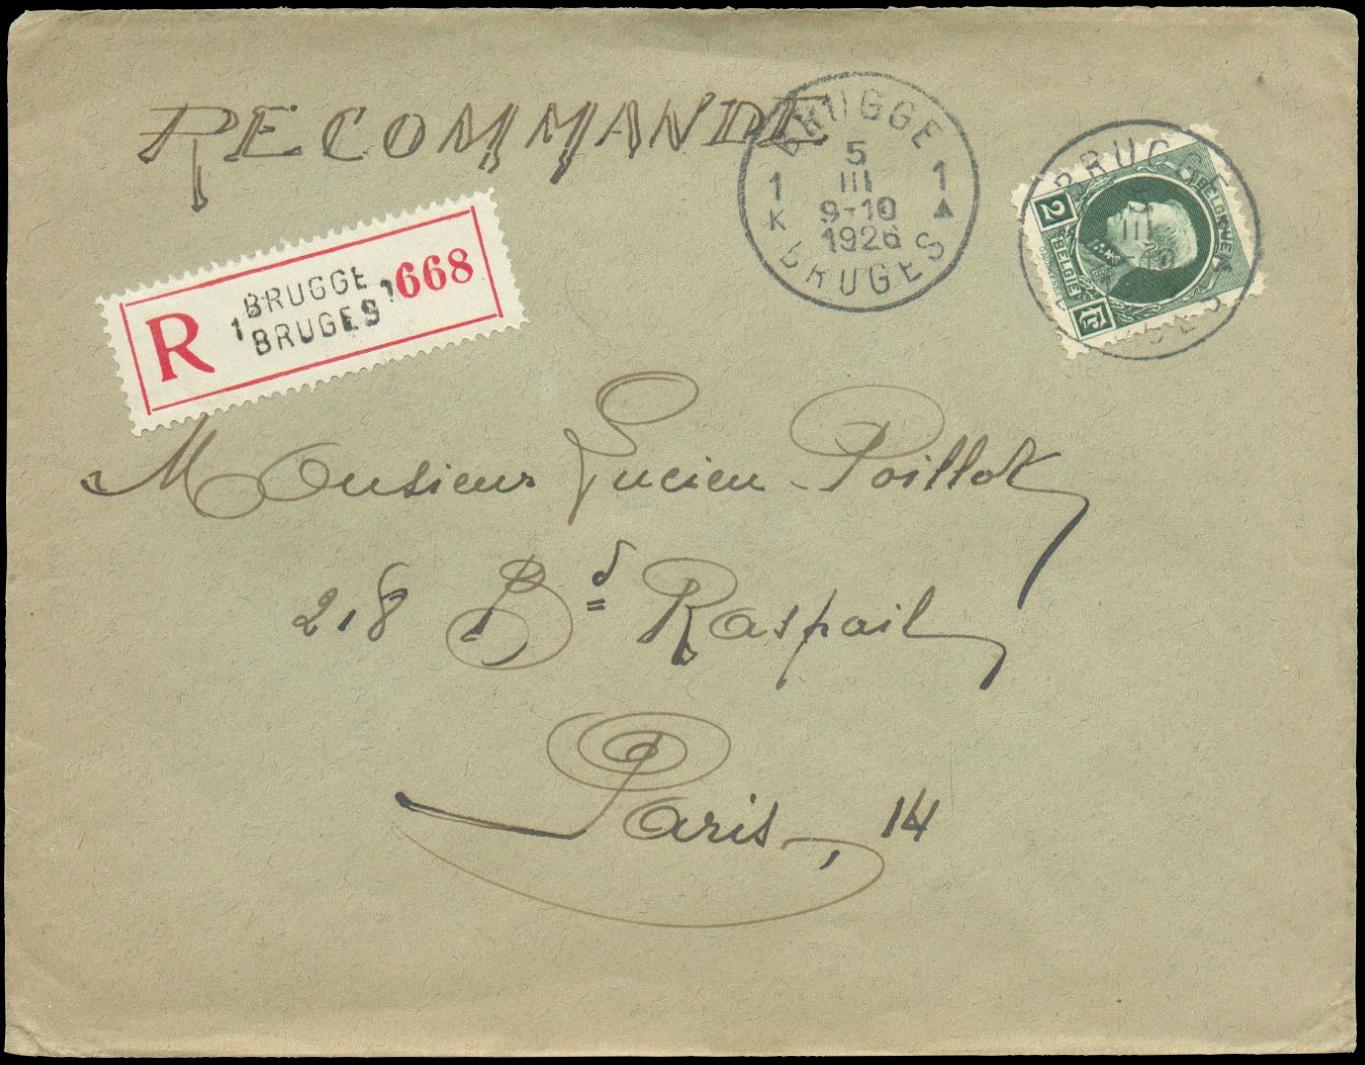 RECOMMANDÉ
BRUGGE
5
III
1 1
9-10
K
1926
BRUGES
BRUGGE
III
BELGIQUE
2
BELGIË
Fr
R
1 BRUGGE 1
BRUGES
668
Monsieur Lucien Poillot
218 Bd Raspail
Paris, 14